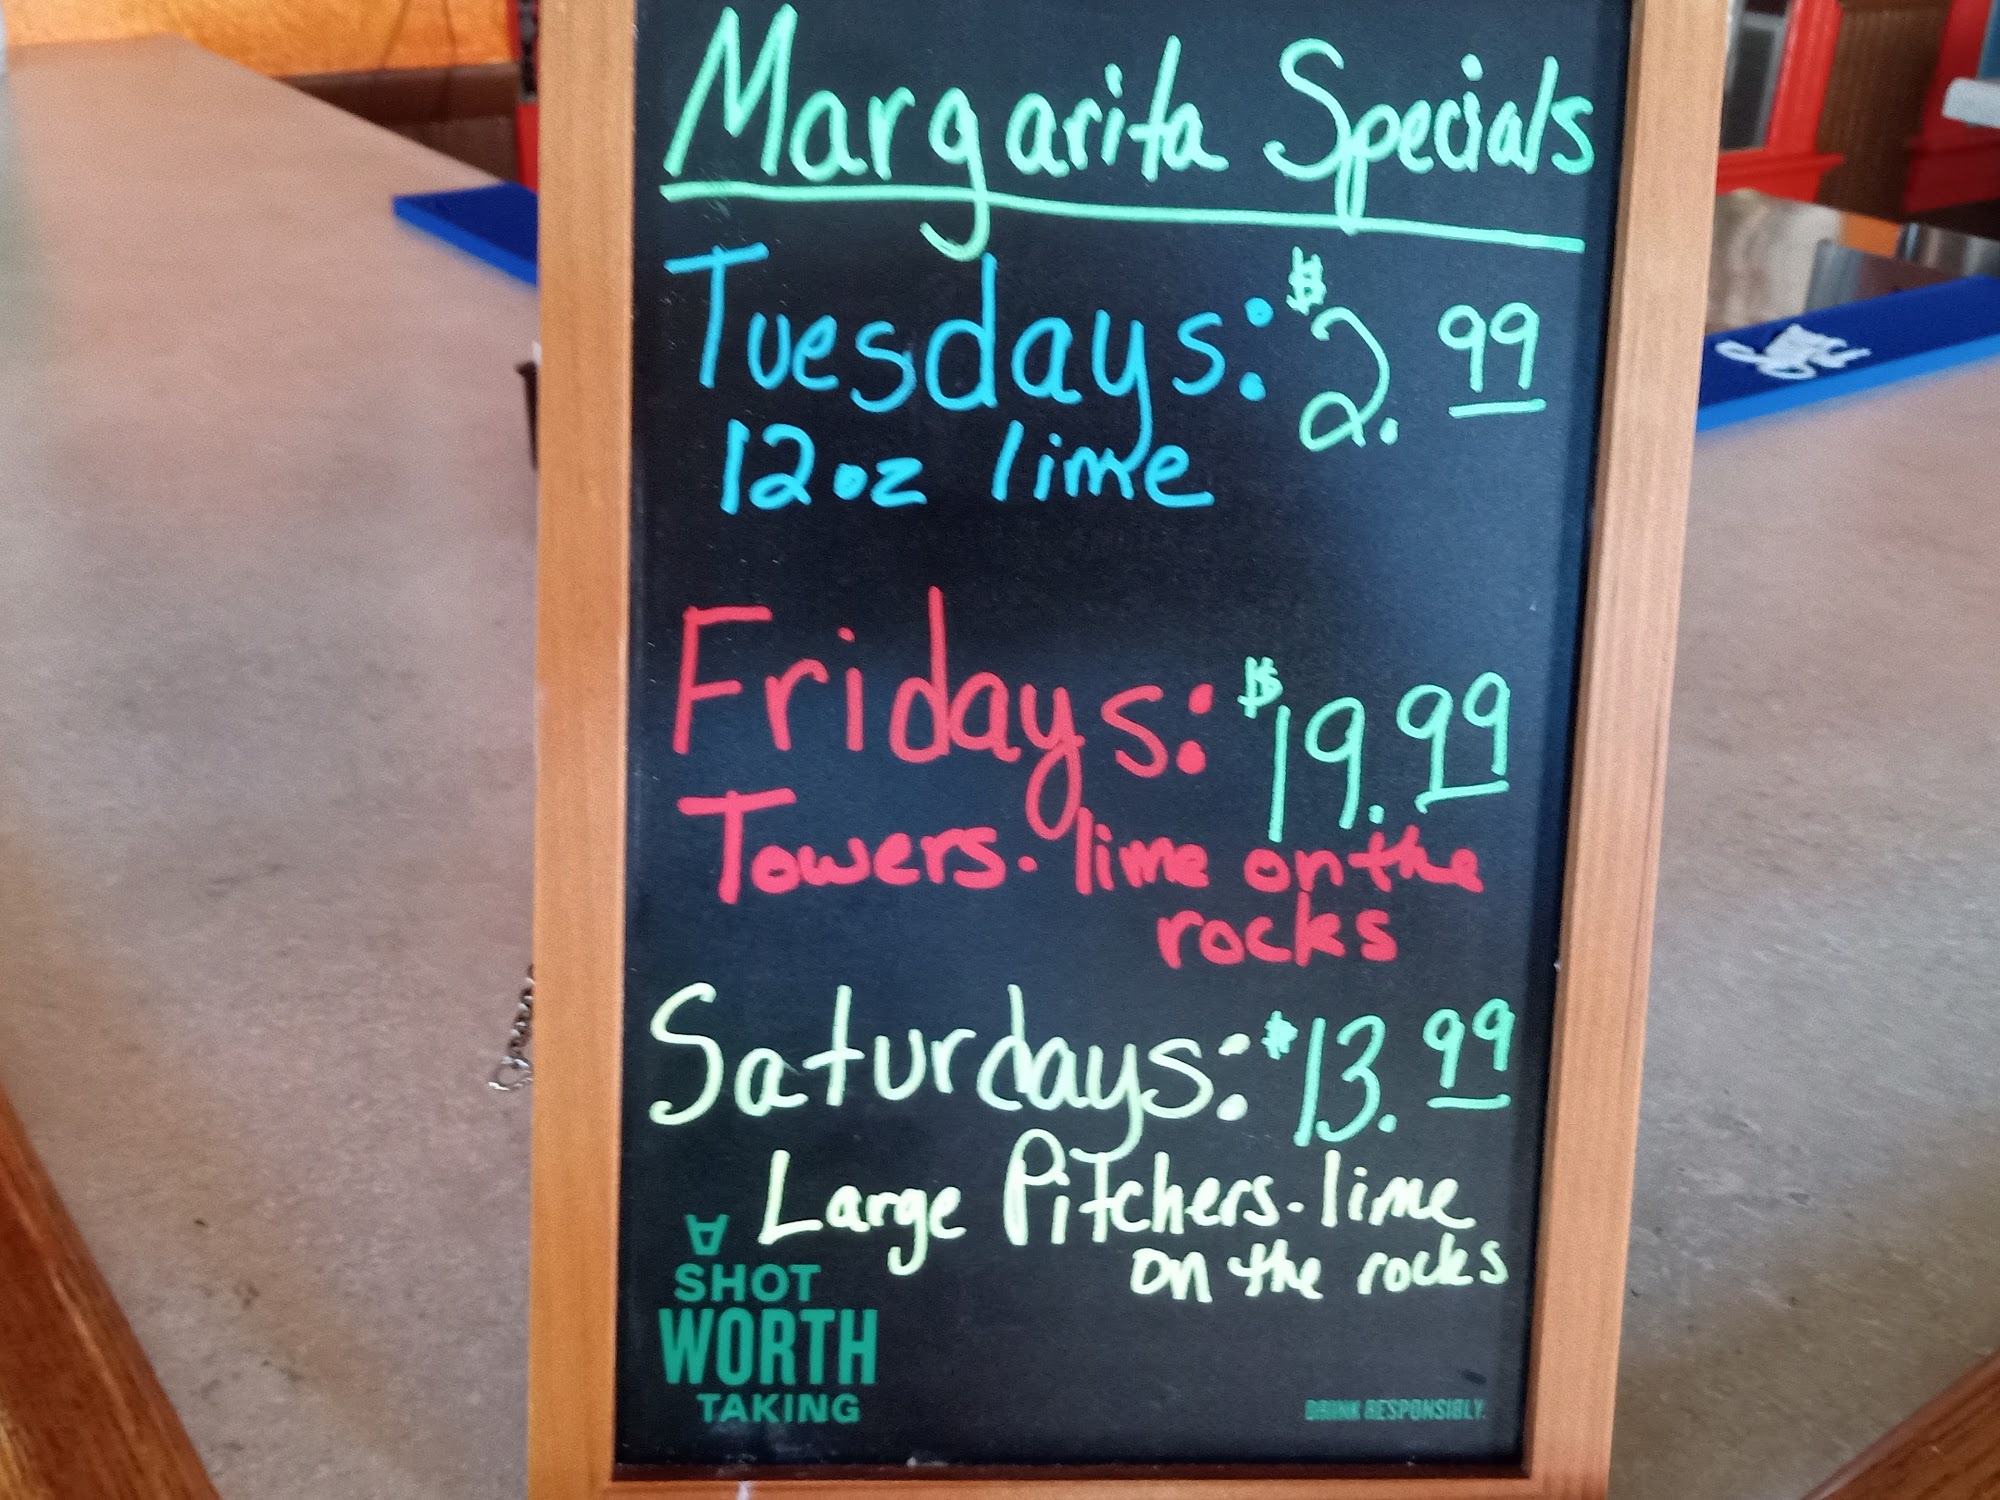 Margarita Specials
Tuesdays: $2.99
12oz lime
Fridays: $19.99
Towers. lime on the
rocks
Saturdays: $13.99
Large Pitchers. lime
on the rocks
A
SHOT
WORTH
TAKING
DRINK RESPONSIBLY.